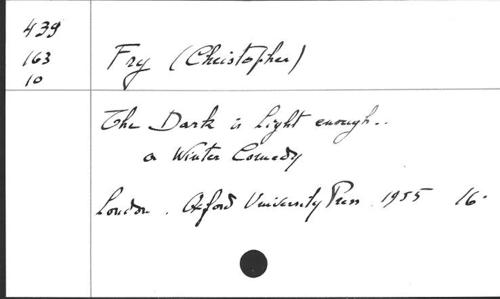 439
163
10
Fry (Christopher)
The Dark is light enough..
a Winter Comedy
London. Oxford University Press. 1955 16°